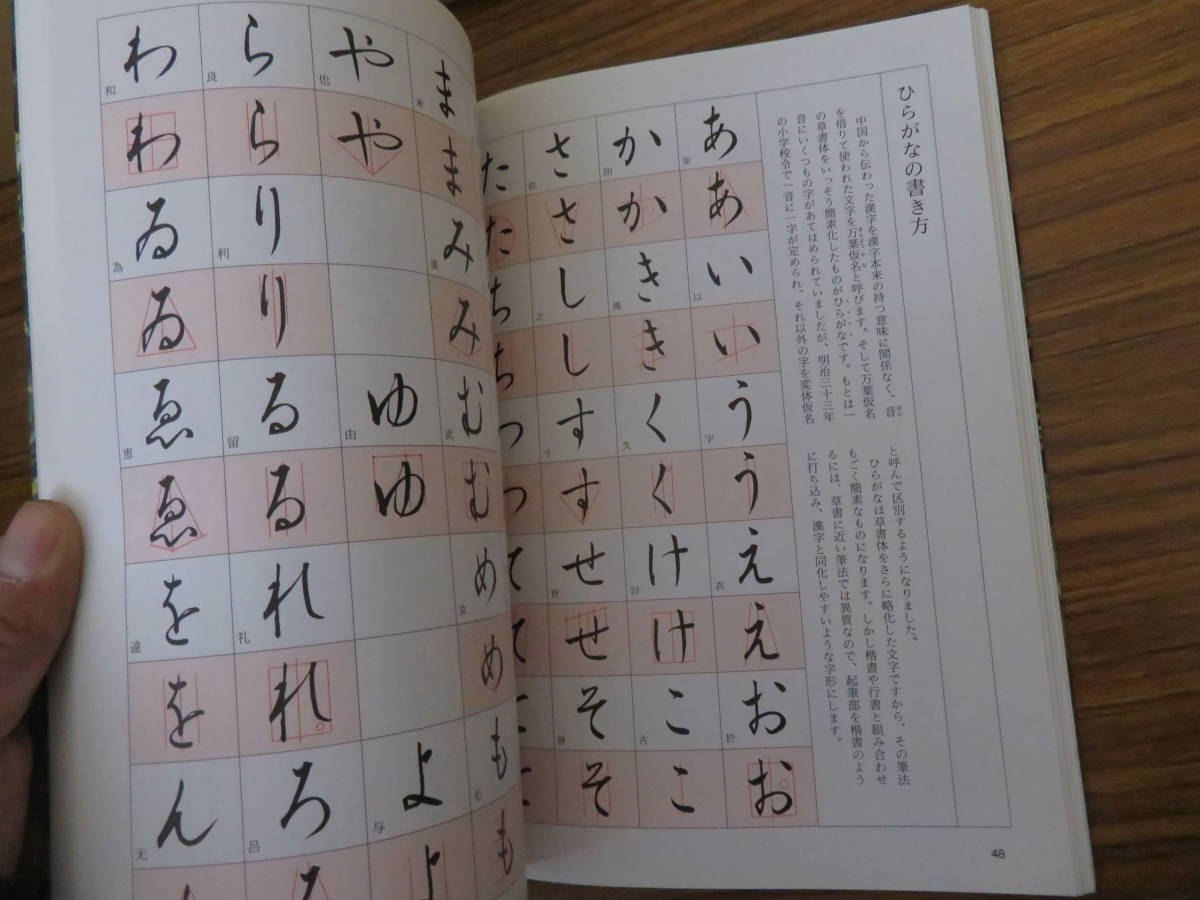 ひらがなの書き方
中国から伝わった漢字を漢字本来の持つ意味に関係なく、音
おん
を借りて使われた文字を万葉仮名と呼びます。そして万葉仮名
の草書体をいっそう簡素化したものがひらがなです。もとは一
音にいくつもの字があてはめられていましたが、明治三十三年
の小学校令で一音に一字が定められ、それ以外の字を変体仮名
と呼んで区別するようになりました。
ひらがなは草書体をさらに略化した文字ですから、その筆法
もごく簡素なものになります。しかし楷書や行書と組み合わせ
るには、草書に近い筆法では異質なので、起筆部を楷書のよう
に打ち込み、漢字と同化しやすいような字形にします。
あ 安
あ
い 以
い
う 宇
う
え 衣
え
お 於
お
か 加
か
き 幾
き
く 久
く
け 計
け
こ 古
こ
さ 佐
さ
し 之
し
す 寸
す
せ 世
せ
そ 曽
そ
た
た
ち
ち
つ
つ
て
て
48
ま 末
ま
み 美
み
む 武
む
め 女
め
も 毛
も
や 也
や
ゆ 由
ゆ
よ 与
よ
ら 良
ら
り 利
り
る 留
る
れ 礼
れ
ろ 呂
わ 和
わ
ゐ 為
ゐ
ゑ 恵
ゑ
を 遠
を
ん 无